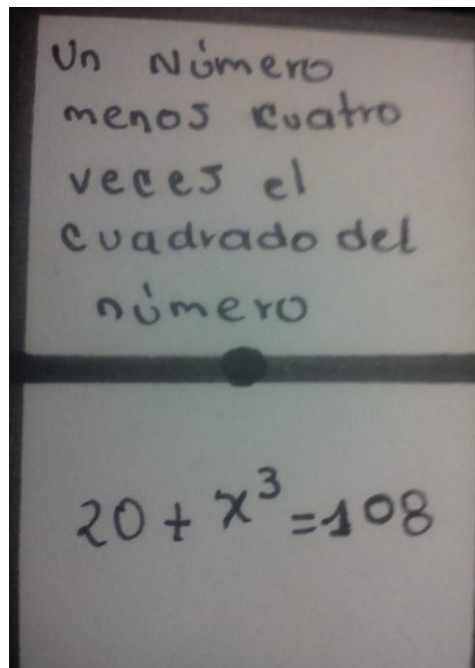 Un Número
menos cuatro
veces el
cuadrado del
número
20 + x³ = 108